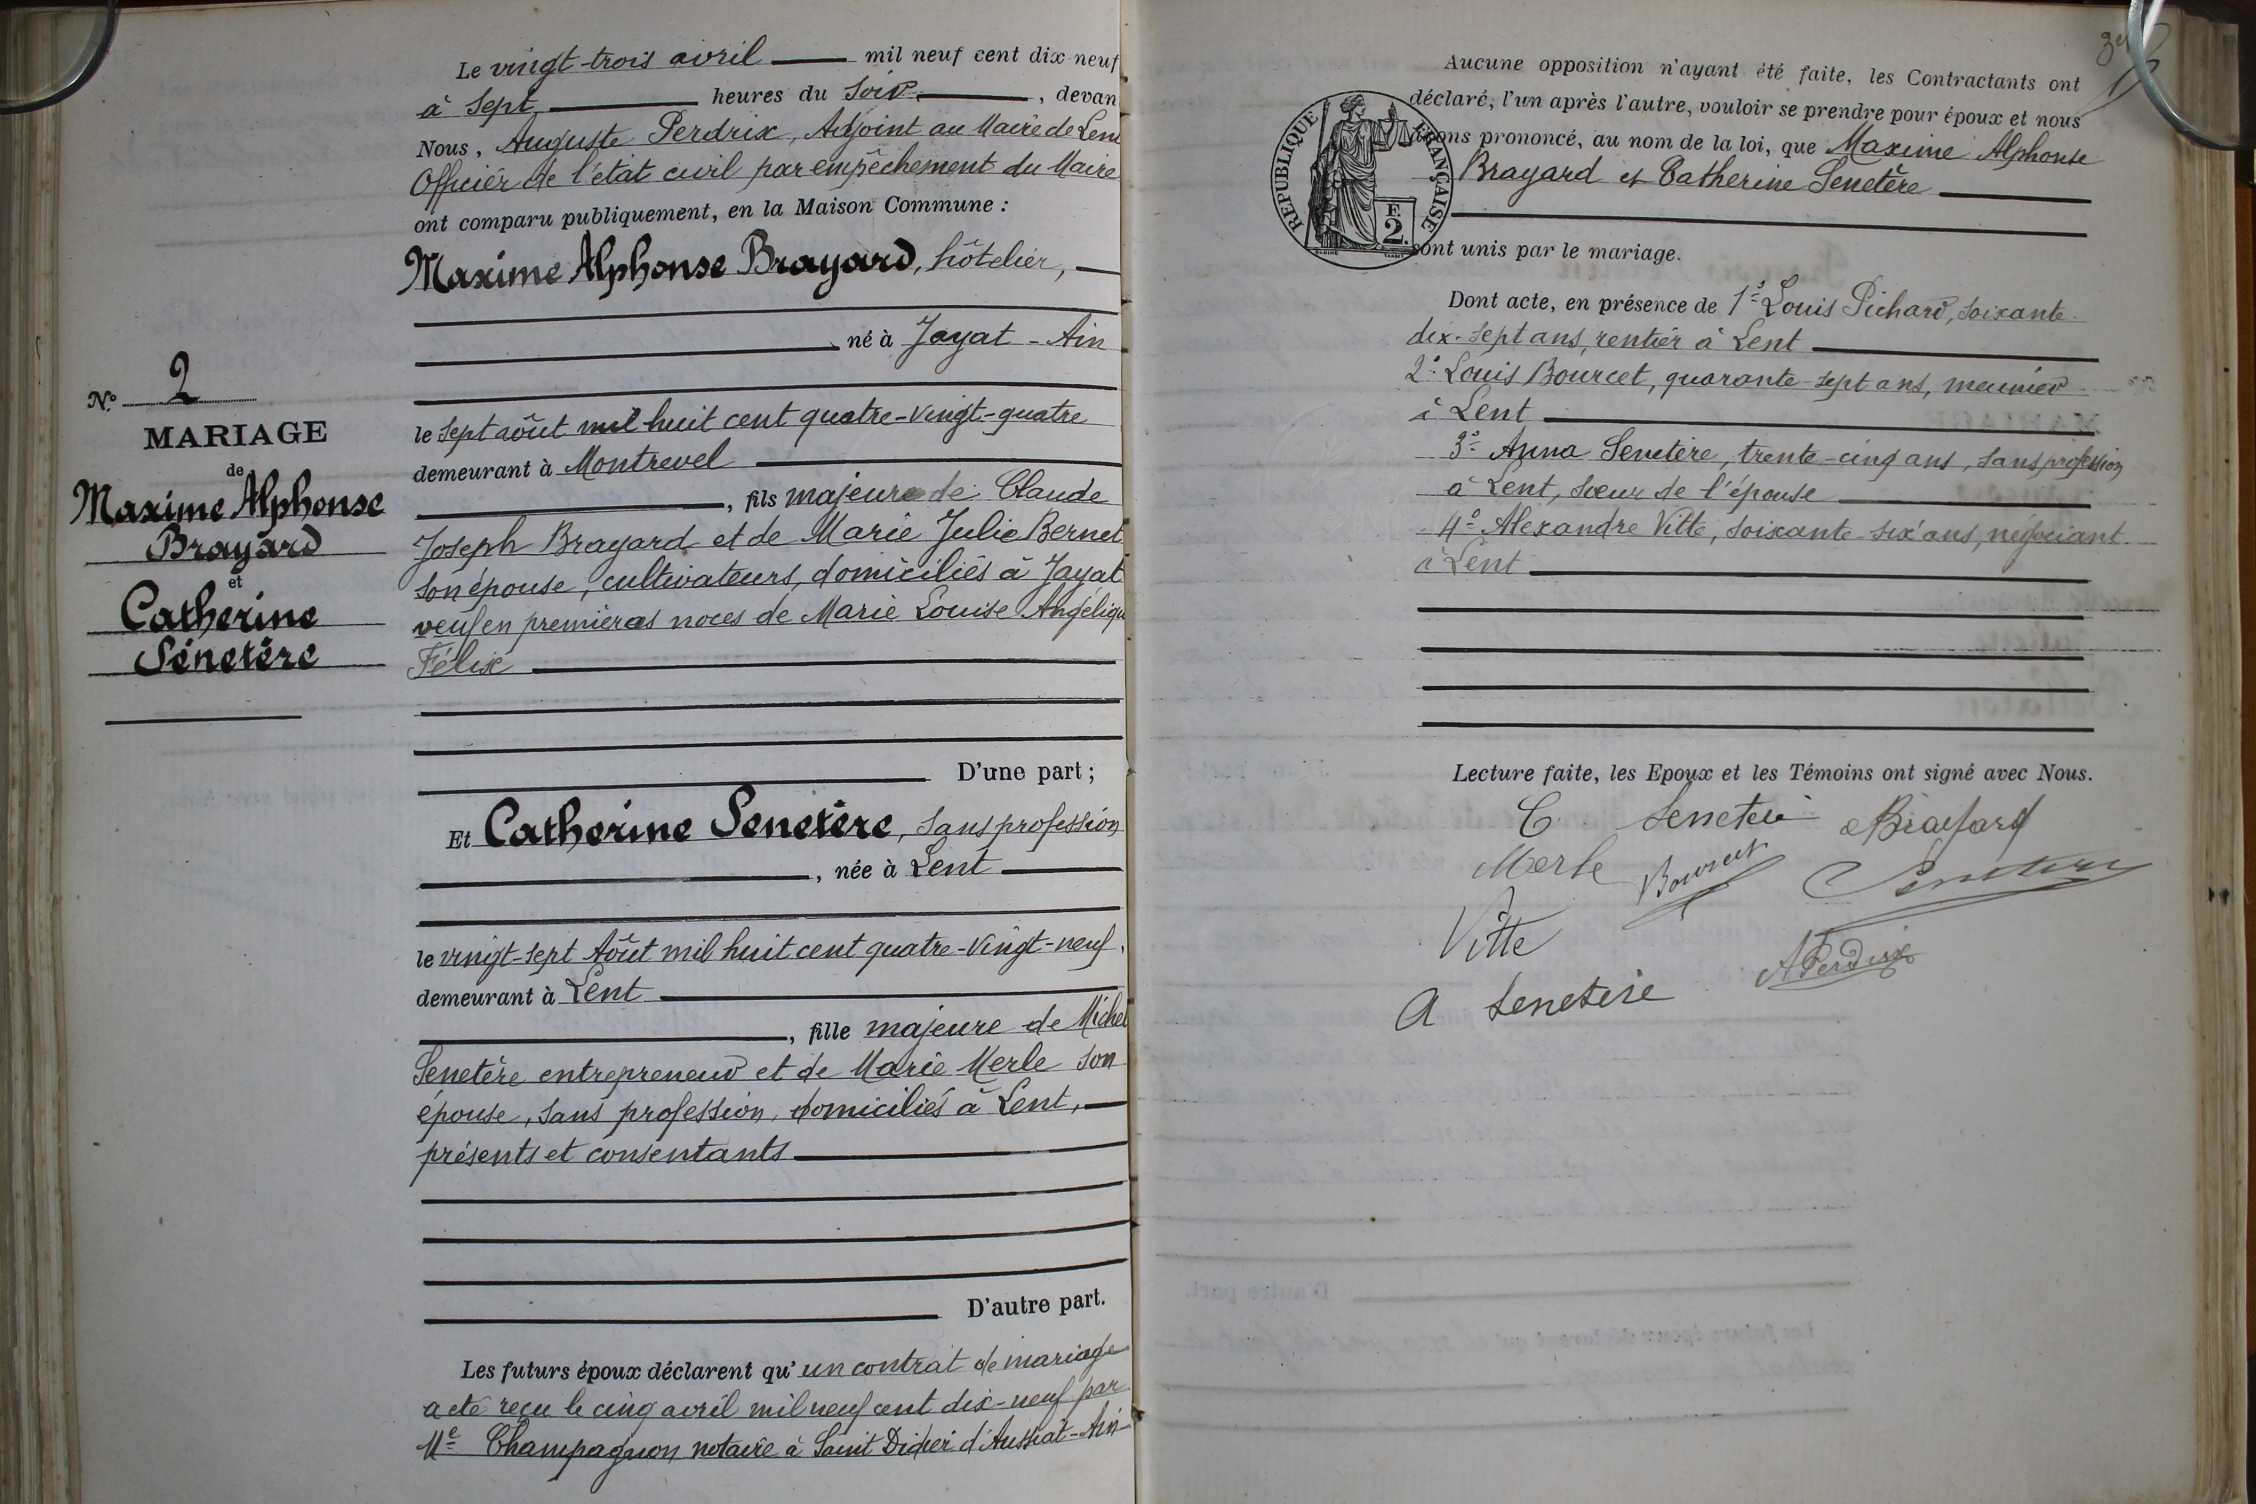 Le vingt-trois avril mil neuf cent dix neuf
à sept heures du soir, devan
Nous, Auguste Perdrix, Adjoint au Maire de Lent
Officier de l'état civil par empêchement du Maire
ont comparu publiquement, en la Maison Commune :
Maxime Alphonse Brayard, hôtelier,
né à Jayat - Ain
le sept août mil huit cent quatre-vingt-quatre
demeurant à Montrevel
, fils majeur de Claude
Joseph Brayard et de Marie Julie Bernet
son épouse, cultivateurs, domiciliés à Jayat
veuf en premières noces de Marie Louise Angéliqu
Félix
D'une part ;
Et Catherine Senetère, sans profession
, née à Lent
le vingt-sept Août mil huit cent quatre-vingt-neuf,
demeurant à Lent
, fille majeure de Michel
Senetère entrepreneur et de Marie Merle son
épouse, sans profession, domiciliés à Lent,
présents et consentants
D'autre part.
Les futurs époux déclarent qu'un contrat de mariage
a été reçu le cinq avril mil neuf cent dix-neuf par
Me Champagnon notaire à Saint Didier d'Aussiat - Ain
No 2
MARIAGE
de
Maxime Alphonse
Brayard
et
Catherine
Sénetère
Aucune opposition n'ayant été faite, les Contractants ont
déclaré, l'un après l'autre, vouloir se prendre pour époux et nous
avons prononcé, au nom de la loi, que Maxime Alphonse
Brayard et Catherine Senetère
sont unis par le mariage.
RÉPUBLIQUE FRANÇAISE
F.
2.
Dont acte, en présence de 1° Louis Pichard, soixante-
dix-sept ans, rentier à Lent
2° Louis Bourcet, quarante-sept ans, meunier
à Lent
3° Anna Senetère, trente-cinq ans, sans profession
à Lent, sœur de l'épouse
4° Alexandre Vitte, soixante-six ans, négociant
à Lent
Lecture faite, les Epoux et les Témoins ont signé avec Nous.
C Senetère Brayard
Merle Bourcet Senetère
Vitte APerdrix
A Senetere